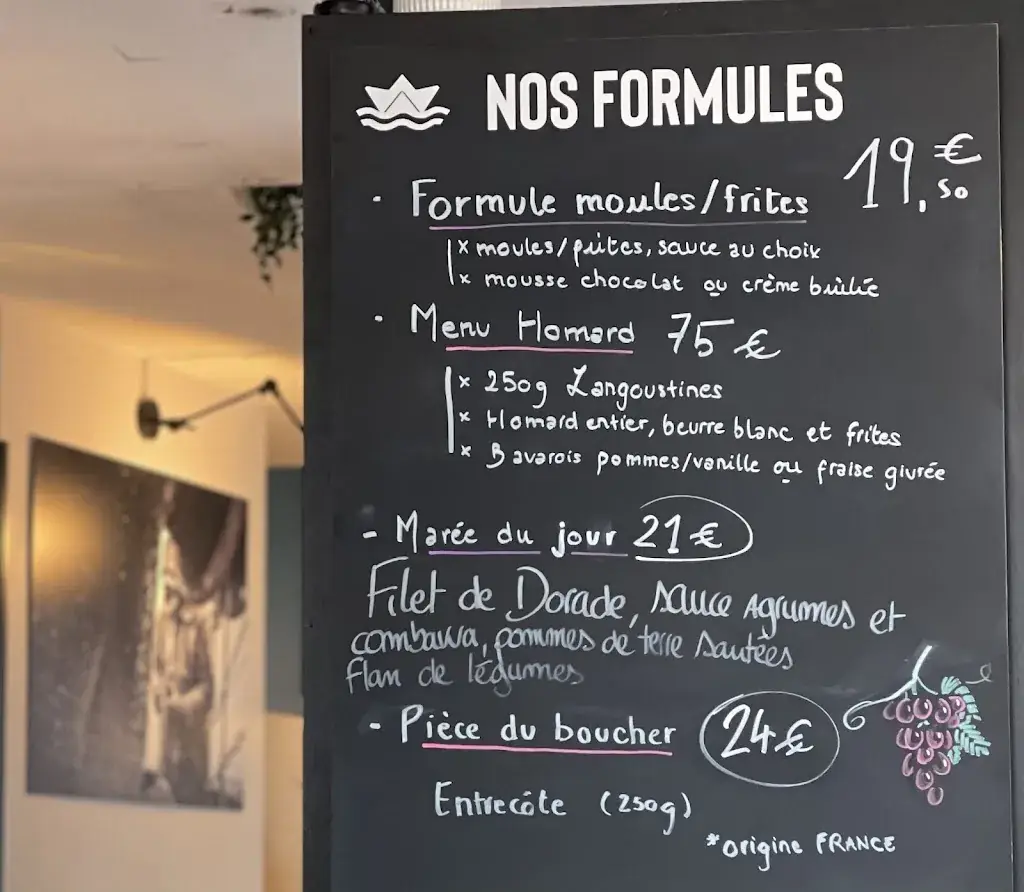 NOS FORMULES
· Formule moules/frites 19,50 €
x moules/frites, sauce au choix
x mousse chocolat ou crème brûlée
· Menu Homard 75 €
x 250g Langoustines
x Homard entier, beurre blanc et frites
x Bavarois pommes/vanille ou fraise givrée
- Marée du jour 21 €
Filet de Dorade, sauce Agrumes et
combawa, pommes de terre sautées
flan de légumes
- Pièce du boucher 24 €
Entrecôte (250g)
*origine FRANCE